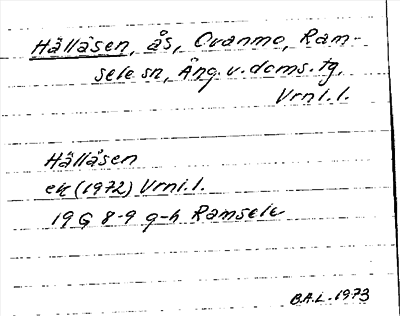 Hällåsen, ås, Ovanmo, Ram-
sele sn, Äng. v. doms. tg,
Vrnl. l.
Hällåsen
ek (1972) Vrnl. l.
19G 8-9 g-h Ramsele
B.A.L. 1973